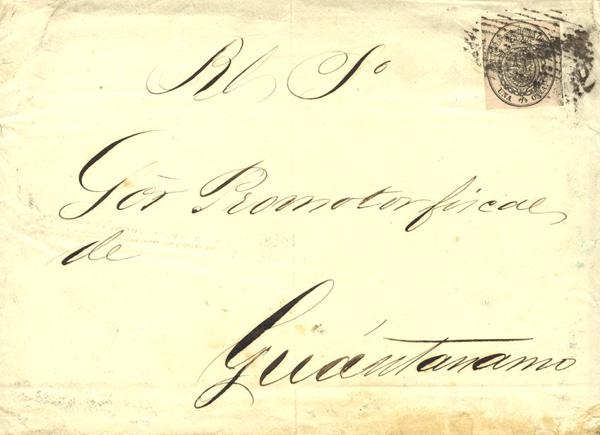 Rl So
Sōr Promotor fiscal
de
Guántanamo
UNA